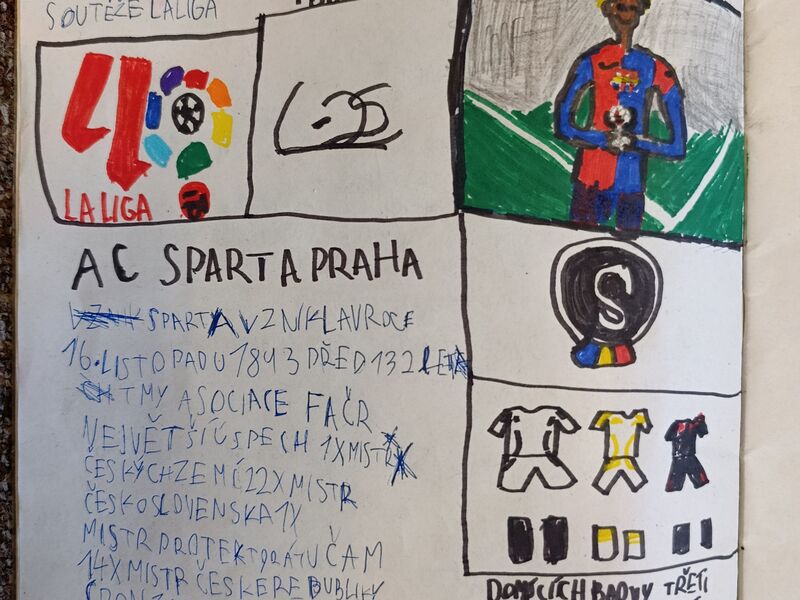 SOUTĚŽE LALIGA
LALIGA
AC SPARTA PRAHA
SPARTA VZNIKLA V ROCE
16. LISTOPADU 1843 PŘED 132 LETA
TMY ASOCIACE FAČR
NEJVĚTŠÍ ÚSPECH 1X MISTR
ČESKÝCH ZEMÍ 22X MISTR
ČESKOSLOVENSKA 1X
MISTR PROTEKTORÁTU ČAM
14X MISTR ČESKÉ REBUBLIKY
S
DOMÁCÍCH BARVY TŘETI